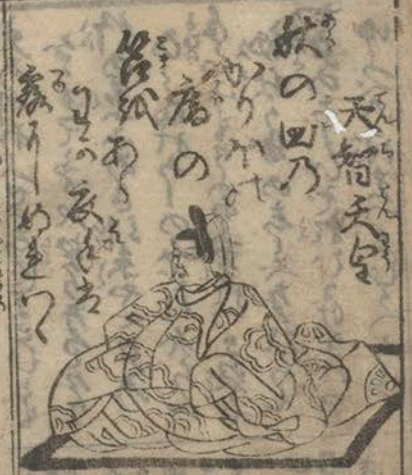 天智天皇
秋の田乃
かりほの
庵の
苫をあらみ
わが衣手は
露にぬれつゝ